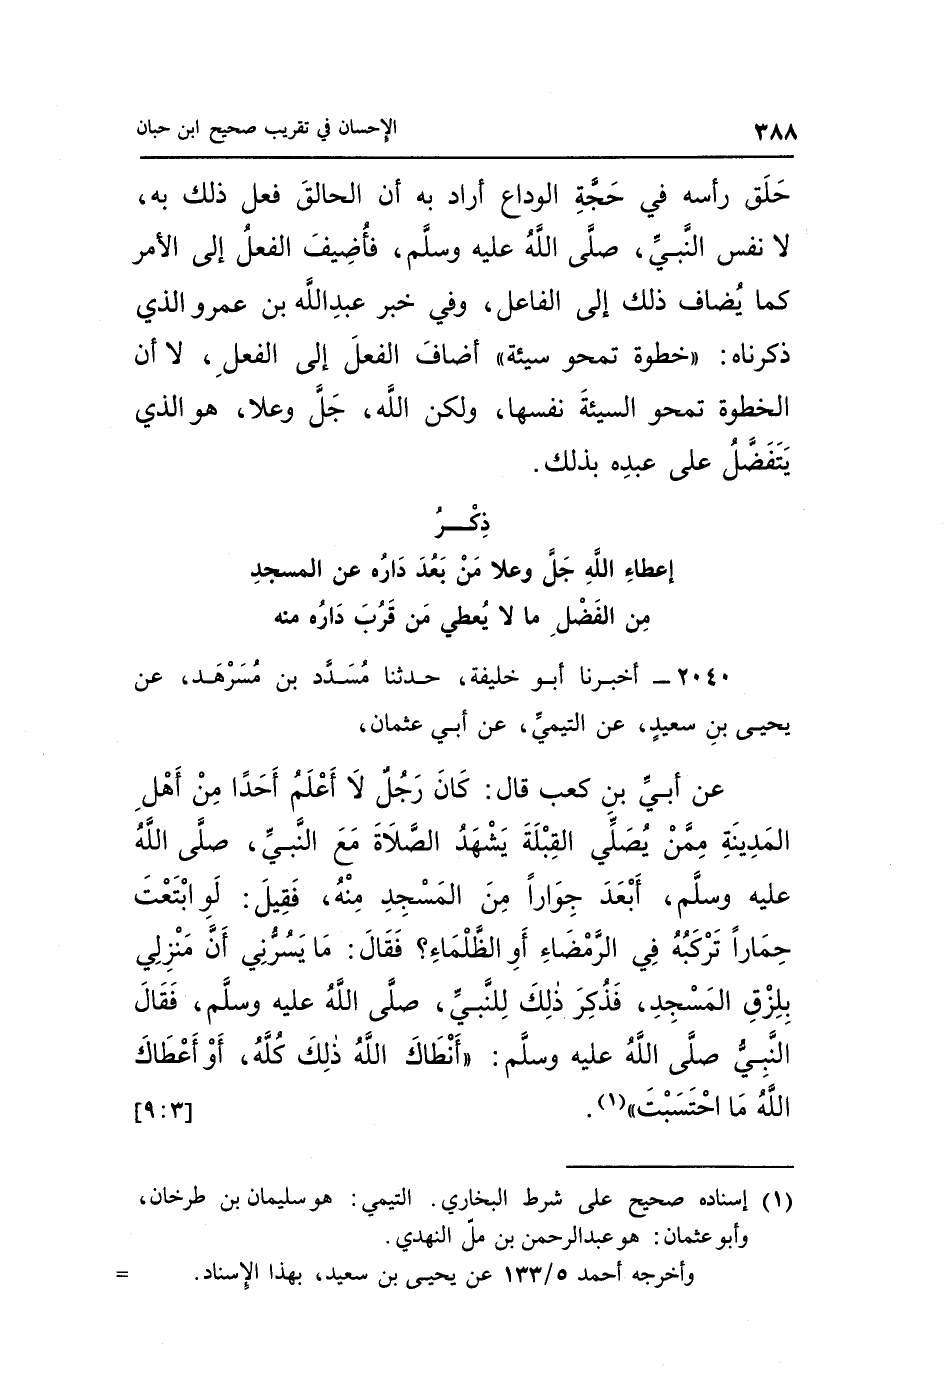 ٣٨٨ الإحسان في تقريب صحيح ابن حبان
حَلَق رأسه في حَجَّةِ الوداع أراد به أن الحالقَ فعل ذلك به،
لا نفس النَّبيِّ، صلَّى اللَّهُ عليه وسلَّم، فأُضِيفَ الفعلُ إلى الأمر
كما يُضاف ذلك إلى الفاعل، وفي خبر عبدِاللَّه بن عمرو الذي
ذكرناه: «خطوة تمحو سيئة» أضافَ الفعلَ إلى الفعلِ، لا أن
الخطوة تمحو السيئةَ نفسها، ولكن اللَّه، جَلَّ وعلا، هو الذي
يَتَفَضَّلُ على عبدِه بذلك.
ذِكْرُ
إعطاءِ اللَّهِ جَلَّ وعلا مَنْ بَعُدَ دَارُه عن المسجدِ
مِن الفَضْلِ ما لا يُعطي مَن قَرُبَ دَارُه منه
٢٠٤٠ ـ أخبرنا أبو خليفة، حدثنا مُسَدَّد بن مُسَرْهَد، عن
يحيى بنِ سعيدٍ، عن التيميِّ، عن أبي عثمان،
عن أبيِّ بنِ كعب قال: كَانَ رَجُلٌ لَا أَعْلَمُ أَحَدًا مِنْ أَهْلِ
المَدِينَةِ مِمَّنْ يُصَلِّي القِبْلَةَ يَشْهَدُ الصَّلَاةَ مَعَ النَّبيِّ، صلَّى اللَّهُ
عليه وسلَّم، أَبْعَدَ جِوَاراً مِنَ المَسْجِدِ مِنْهُ، فَقِيلَ: لَوِ ابْتَعْتَ
حِمَاراً تَرْكَبُهُ فِي الرَّمْضَاءِ أَوِ الظَّلْمَاءِ؟ فَقَالَ: مَا يَسُرُّنِي أَنَّ مَنْزِلِي
بِلِزْقِ المَسْجِدِ، فَذُكِرَ ذٰلِكَ لِلنَّبيِّ، صلَّى اللَّهُ عليه وسلَّم، فَقَالَ
النَّبِيُّ صلَّى اللَّهُ عليه وسلَّم: «أَنْطَاكَ اللَّهُ ذٰلِكَ كُلَّهُ، أَوْ أَعْطَاكَ
اللَّهُ مَا احْتَسَبْتَ»(١). [٩:٣]
(١) إسناده صحيح على شرط البخاري. التيمي: هو سليمان بن طرخان،
وأبو عثمان: هو عبدالرحمن بن ملّ النهدي.
وأخرجه أحمد ١٣٣/٥ عن يحيى بن سعيد، بهذا الإسناد. =